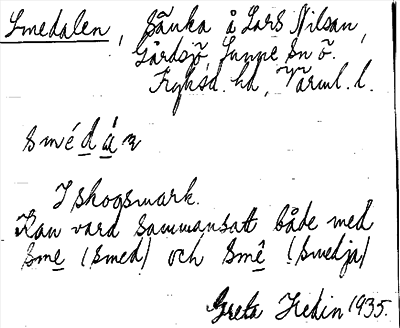 Smedalen, Sänka å Lars Nilsan,
Gårdsjö, Sunne sn ö.
Fryksd. hd, Värml. l.
smédá̤n
I skogsmark.
Kan vard sammansatt både med
sme (smed) och smê (smedja)
Greta Hedin 1935.